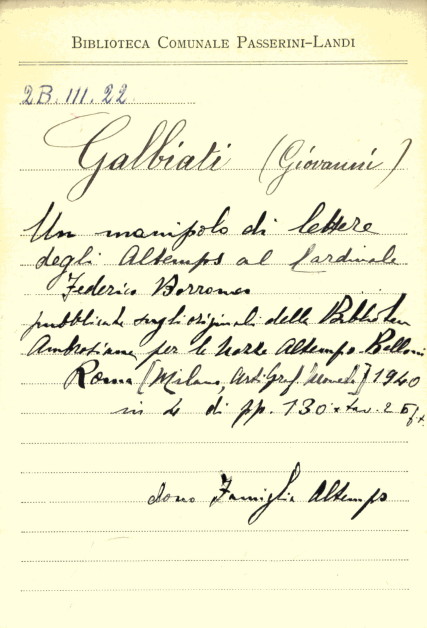 BIBLIOTECA COMUNALE PASSERINI-LANDI
2B.III.22
Galbiati (Giovanni)
Un manipolo di lettere
degli Altemps al Cardinale
Federico Borromeo
pubblicate sugli originali della Biblioteca
Ambrosiana per le Nozze Altemps-Belloni
Roma [Milano, Arti Graf. 1940
in 4 di pp. 130
dono Famiglia Altemps